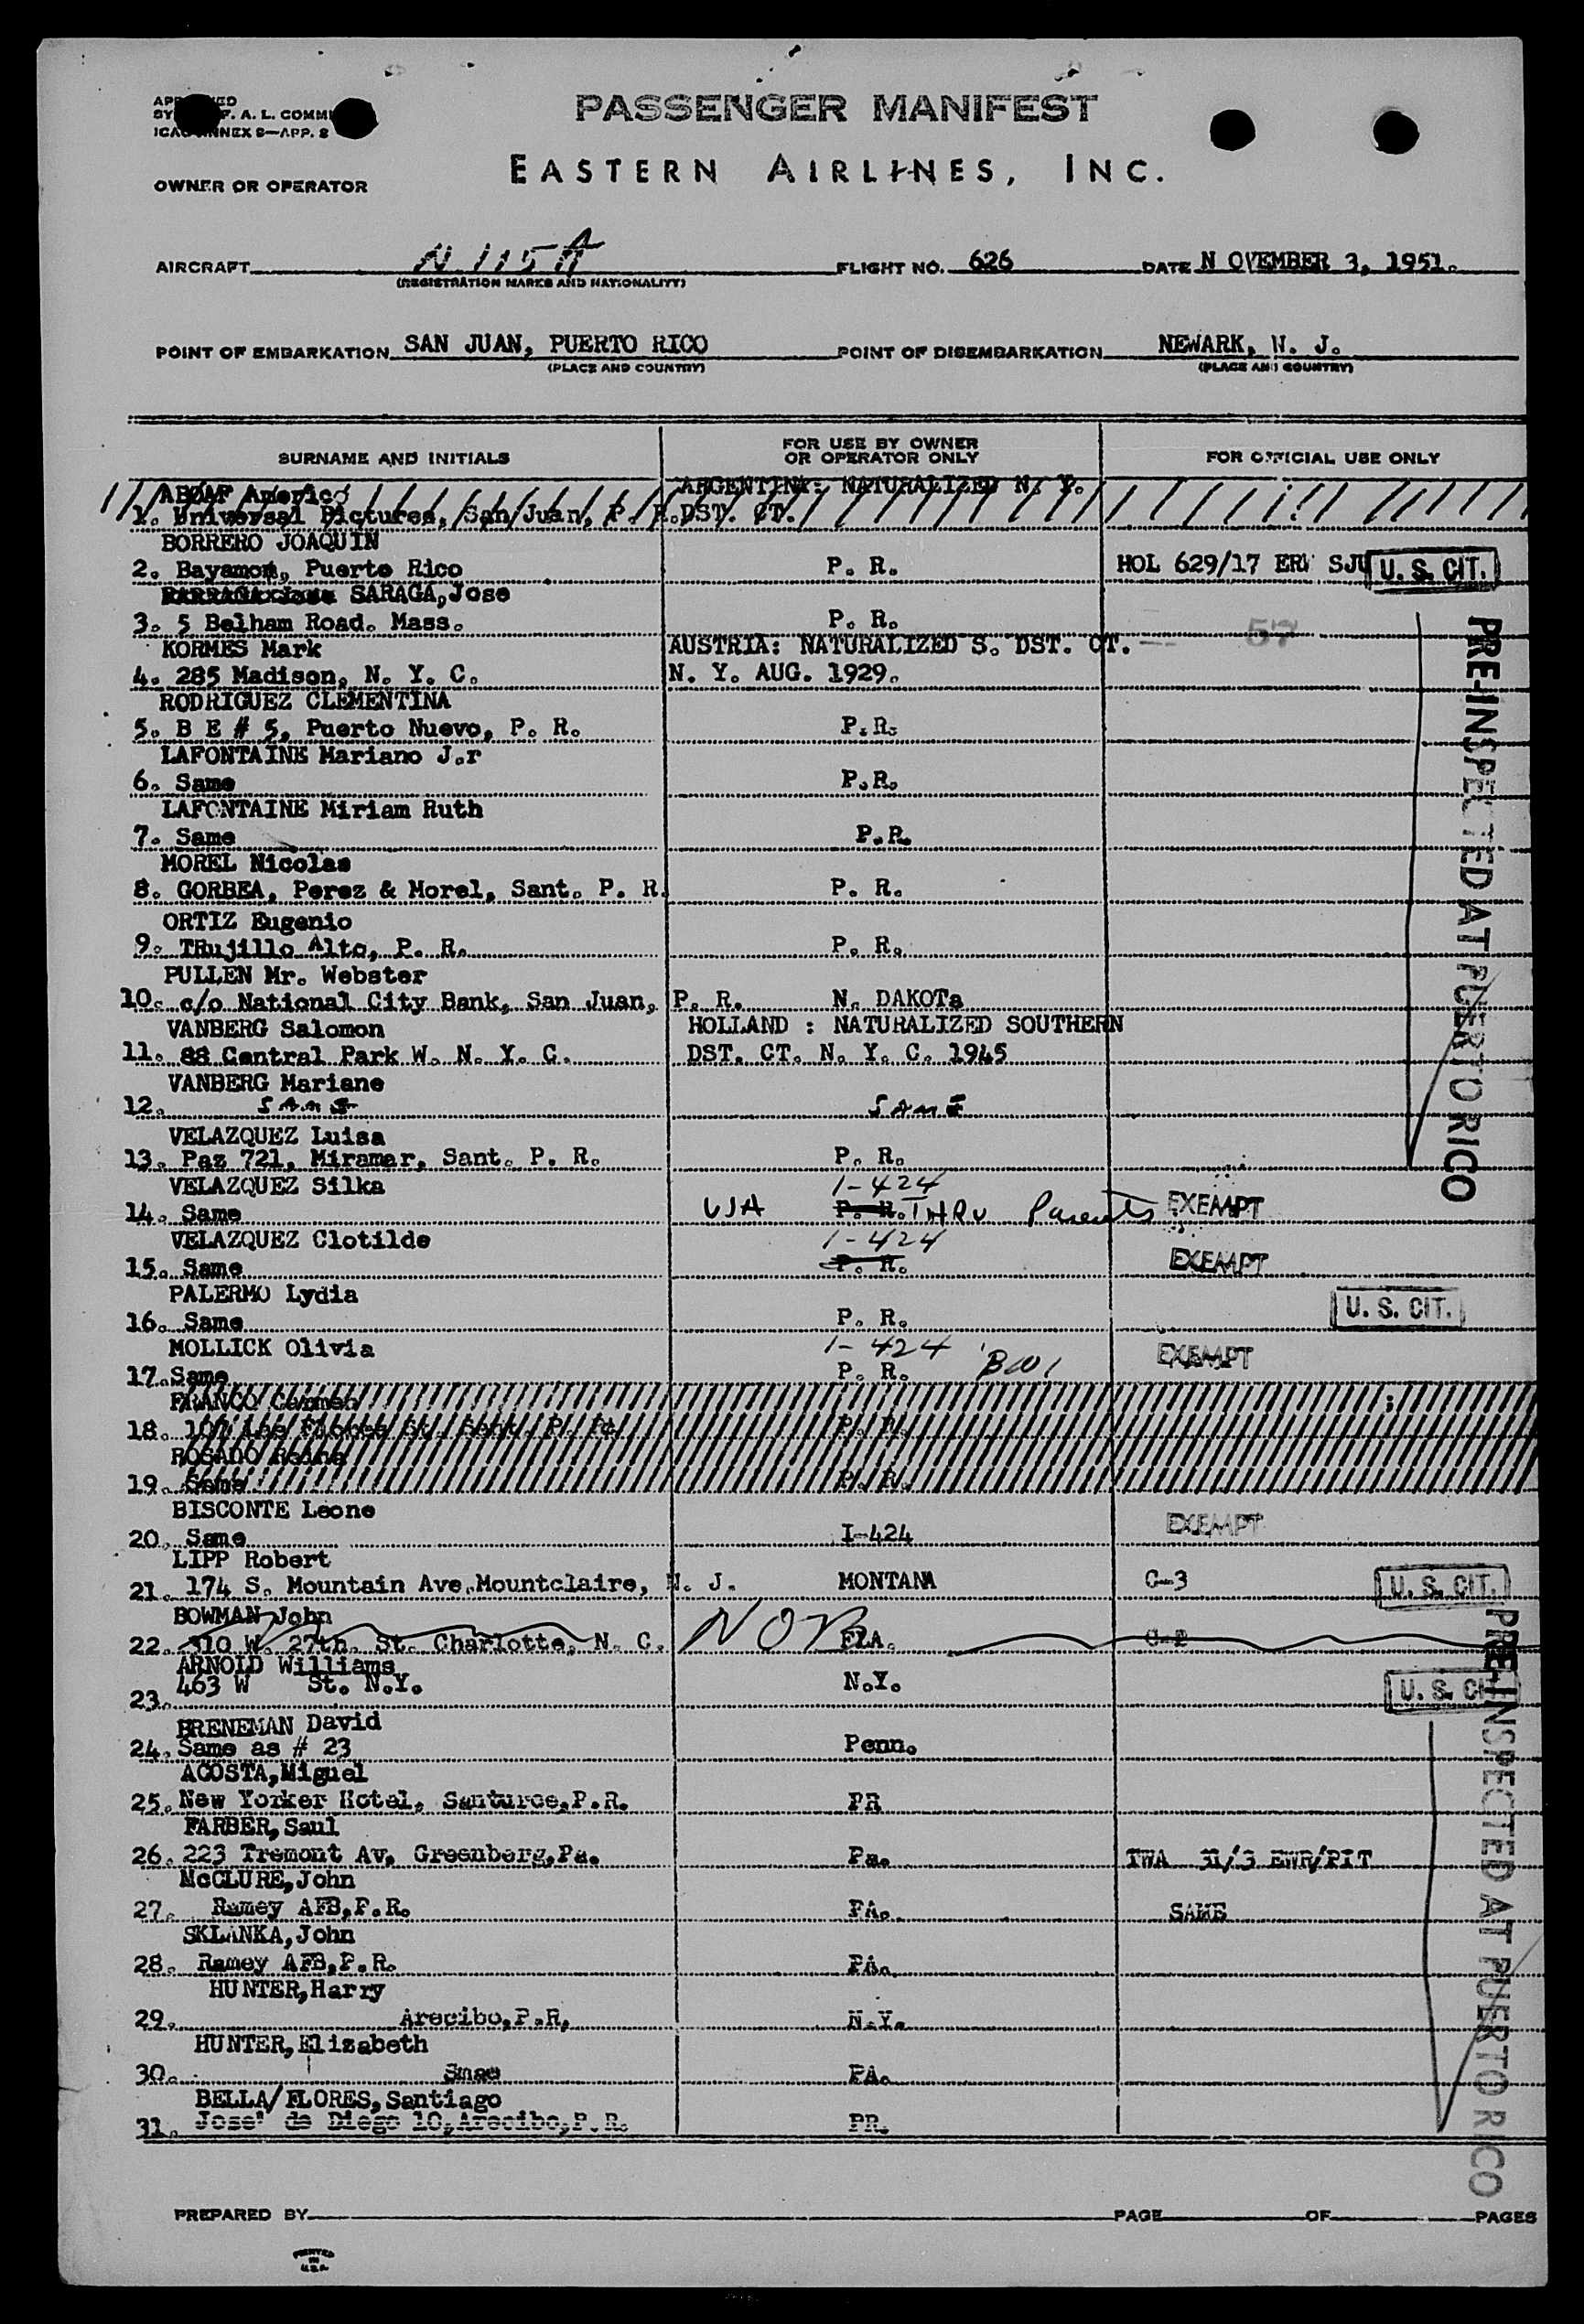 PASSENGER MANIFEST
F. A. L. COMM
ANNEX 9—APP. 2
EASTERN AIRLINES, INC.
OWNER OR OPERATOR
AIRCRAFT N 115A FLIGHT NO. 626 DATE N OVEMBER 3, 1951.
(REGISTRATION MARKS AND NATIONALITY)
POINT OF EMBARKATION SAN JUAN, PUERTO RICO POINT OF DISEMBARKATION NEWARK, N. J.
(PLACE AND COUNTRY) (PLACE AND COUNTRY)
SURNAME AND INITIALS FOR USE BY OWNER OR OPERATOR ONLY FOR OFFICIAL USE ONLY
ABOAF Americo ARGENTINA: NATURALIZED N. Y.
1. Universal Pictures, San Juan, P. R. DST. CT.
BORRERO JOAQUIN
2. Bayamon, Puerto Rico P. R. HOL 629/17 ERW SJU U. S. CIT.
SARAGA, Jose
3. 5 Belham Road. Mass. P. R. 57
KORMES Mark AUSTRIA: NATURALIZED S. DST. CT.
4. 285 Madison, N. Y. C. N. Y. AUG. 1929.
RODRIGUEZ CLEMENTINA
5. B E # 5, Puerto Nuevo, P. R. P.R.
LAFONTAINE Mariano J.r
6. Same P.R.
LAFONTAINE Miriam Ruth
7. Same P.R.
MOREL Nicolas
8. GORBEA, Perez & Morel, Sant. P. R. P. R.
ORTIZ Eugenio
9. TRujillo Alto, P. R. P. R.
PULLEN Mr. Webster
10. c/o National City Bank, San Juan, P. R. N. DAKOTa
VANBERG Salomon HOLLAND : NATURALIZED SOUTHERN
11. 88 Central Park W. N. Y. C. DST. CT. N. Y. C. 1945
VANBERG Mariane
12. SAME SAME
VELAZQUEZ Luisa
13. Paz 721, Miramar, Sant. P. R. P. R.
VELAZQUEZ Silka 1-424
14. Same USA P. R. THRU Parents EXEMPT
VELAZQUEZ Clotilde 1-424
15. Same P. R. EXEMPT
PALERMO Lydia
16. Same P. R. U. S. CIT.
MOLLICK Olivia 1-424
17. Same P. R. BWI EXEMPT
FRANCO Carmen
18. St. Sant. P. R. P. R.
ROSADO
19. Same P. R.
BISCONTE Leone
20. Same I-424 EXEMPT
LIPP Robert
21. 174 S. Mountain Ave. Mountclaire, N. J. MONTANA C-3 U. S. CIT.
BOWMAN John
22. 310 W. 27th. St. Charlotte, N. C. FLA.
ARNOLD Williams
23. 463 W St. N.Y. N.Y. U. S. CIT.
BRENEMAN David
24. Same as # 23 Penn.
ACOSTA, Miguel
25. New Yorker Hotel, Santurce, P.R. PR
FARBER, Saul
26. 223 Tremont Av, Greenberg, Pa. Pa. TWA 31/3 EWR/PIT
McCLURE, John
27. Ramey AFB, P.R. PA. SAME
SKLANKA, John
28. Ramey AFB, P.R. PA.
HUNTER, Harry
29. Arecibo, P.R, N.Y.
HUNTER, Elizabeth
30. Smae PA.
BELLA/FLORES, Santiago
31. Jose' de Diego 10, Arecibo, P.R. PR.
PRE-INSPECTED AT PUERTO RICO
PRE-INSPECTED AT PUERTO RICO
PREPARED BY PAGE OF PAGES
PRINTED
IN
U.S.A.